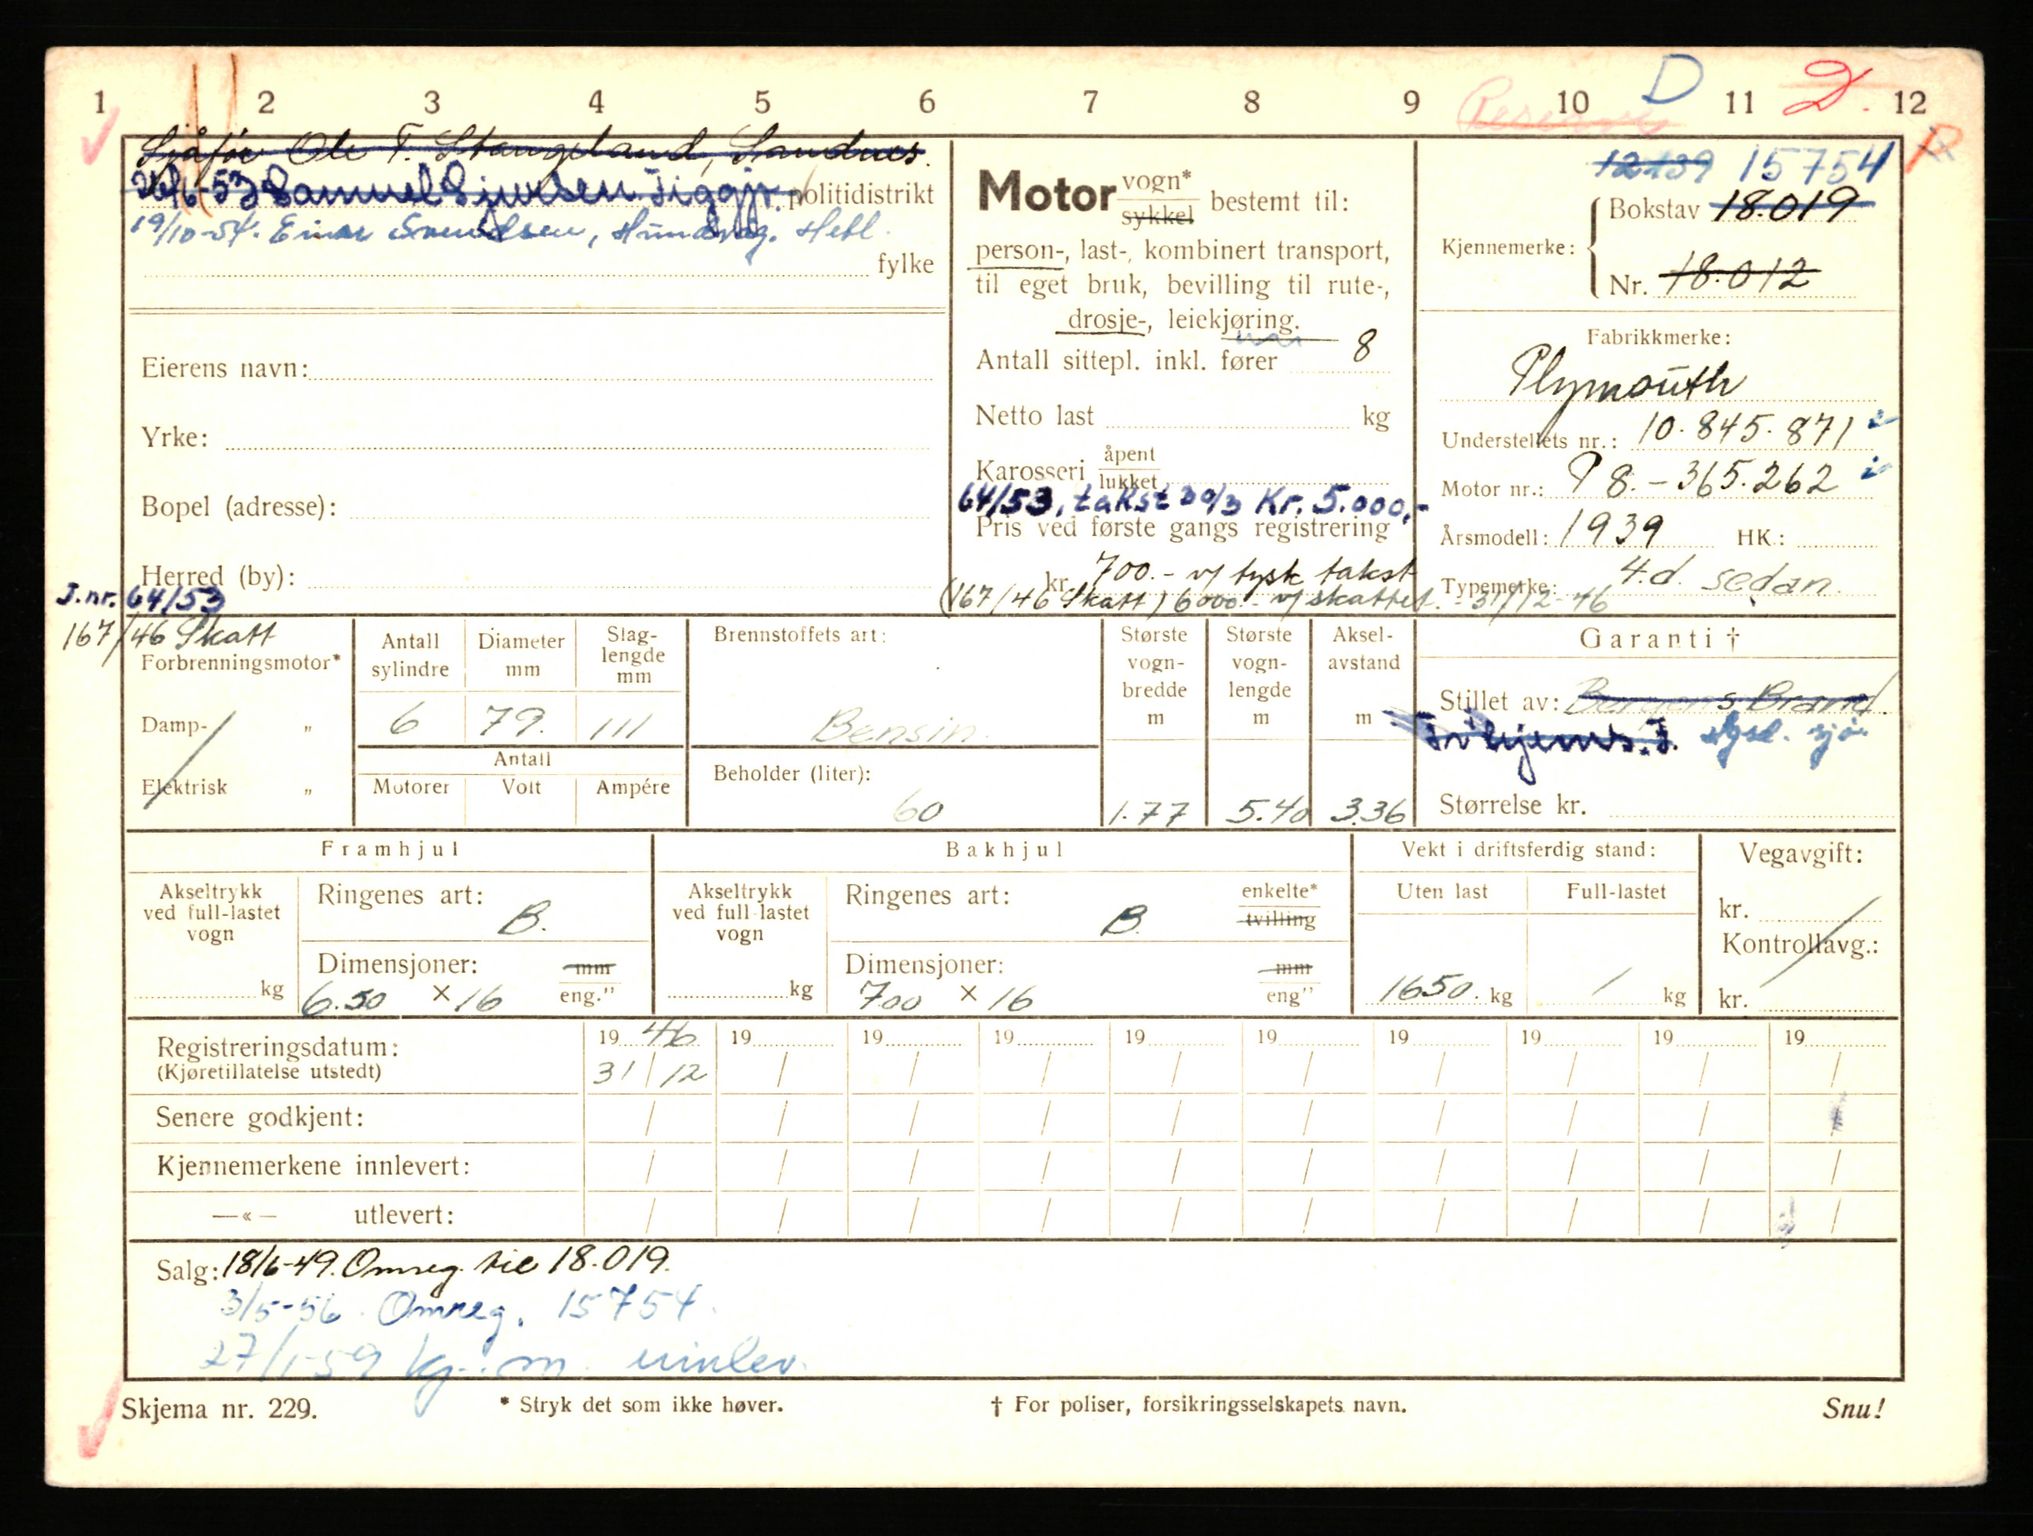 1 2 3 4 5 6 7 8 9 10 11 12
Reserve D D.
Sjåfør Ole T. Stangeland, Sandnes.
26/6-53 Samuel Sjursen Figgjo. politidistrikt
19/10-54. Einar Svendsen, Hundvåg. Hetl.
fylke
Eierens navn:
Yrke:
Bopel (adresse):
Herred (by):
J.nr. 64/53
167/46 Skatt
Motor vogn* sykkel bestemt til:
person-, last-, kombinert transport,
til eget bruk, bevilling til rute-,
drosje-, leiekjøring.
Antall sittepl. inkl. fører 8
Netto last kg
Karosseri åpent lukket
64/53, takst 30/3 Kr. 5.000,-
Pris ved første gangs registrering
kr. 700.- v/ tysk takst
(167/46 Skatt) 6000.- v/ skattet. - 31/12-46
15754
Kjennemerke:
Bokstav 18.019
Nr. 18.012
Fabrikkmerke:
Plymouth
Understellets nr.: 10.845.871
Motor nr.: P 8.-365.262
Årsmodell: 1939 HK.:
Typemerke: 4.d. sedan.
Forbrenningsmotor*
Damp- „
Elektrisk „
Antall sylindre 6
Diameter mm 79.
Slag-lengde mm 111
Antall
Motorer Volt Ampére
Brennstoffets art:
Bensin.
Beholder (liter):
60
Største vogn-bredde m 1.77
Største vogn-lengde m 5.40
Aksel-avstand m 3.36
Garanti †
Stillet av: Bergens Brand.
Størrelse kr.
Framhjul
Akseltrykk ved full-lastet vogn
kg
Ringenes art: B.
Dimensjoner: mm
6.50 × 16 eng."
Bakhjul
Akseltrykk ved full-lastet vogn
kg
Ringenes art: B. enkelte* tvilling
Dimensjoner: mm
700 × 16 eng"
Vekt i driftsferdig stand:
Uten last Full-lastet
1650. kg / kg
Vegavgift:
kr.
Kontrollavg.:
kr.
Registreringsdatum: 19 46 19 19 19 19 19 19 19 19 19
(Kjøretillatelse utstedt) 31/12 / / / / / / / / /
Senere godkjent: / / / / / / / / / /
Kjennemerkene innlevert: / / / / / / / / / /
—«— utlevert: / / / / / / / / / /
Salg: 18/6-49. Omreg. til 18.019.
3/5-56. Omreg. 15754.
27/1-59 kj.m. innlev.
Skjema nr. 229. * Stryk det som ikke høver. † For poliser, forsikringsselskapets navn. Snu!